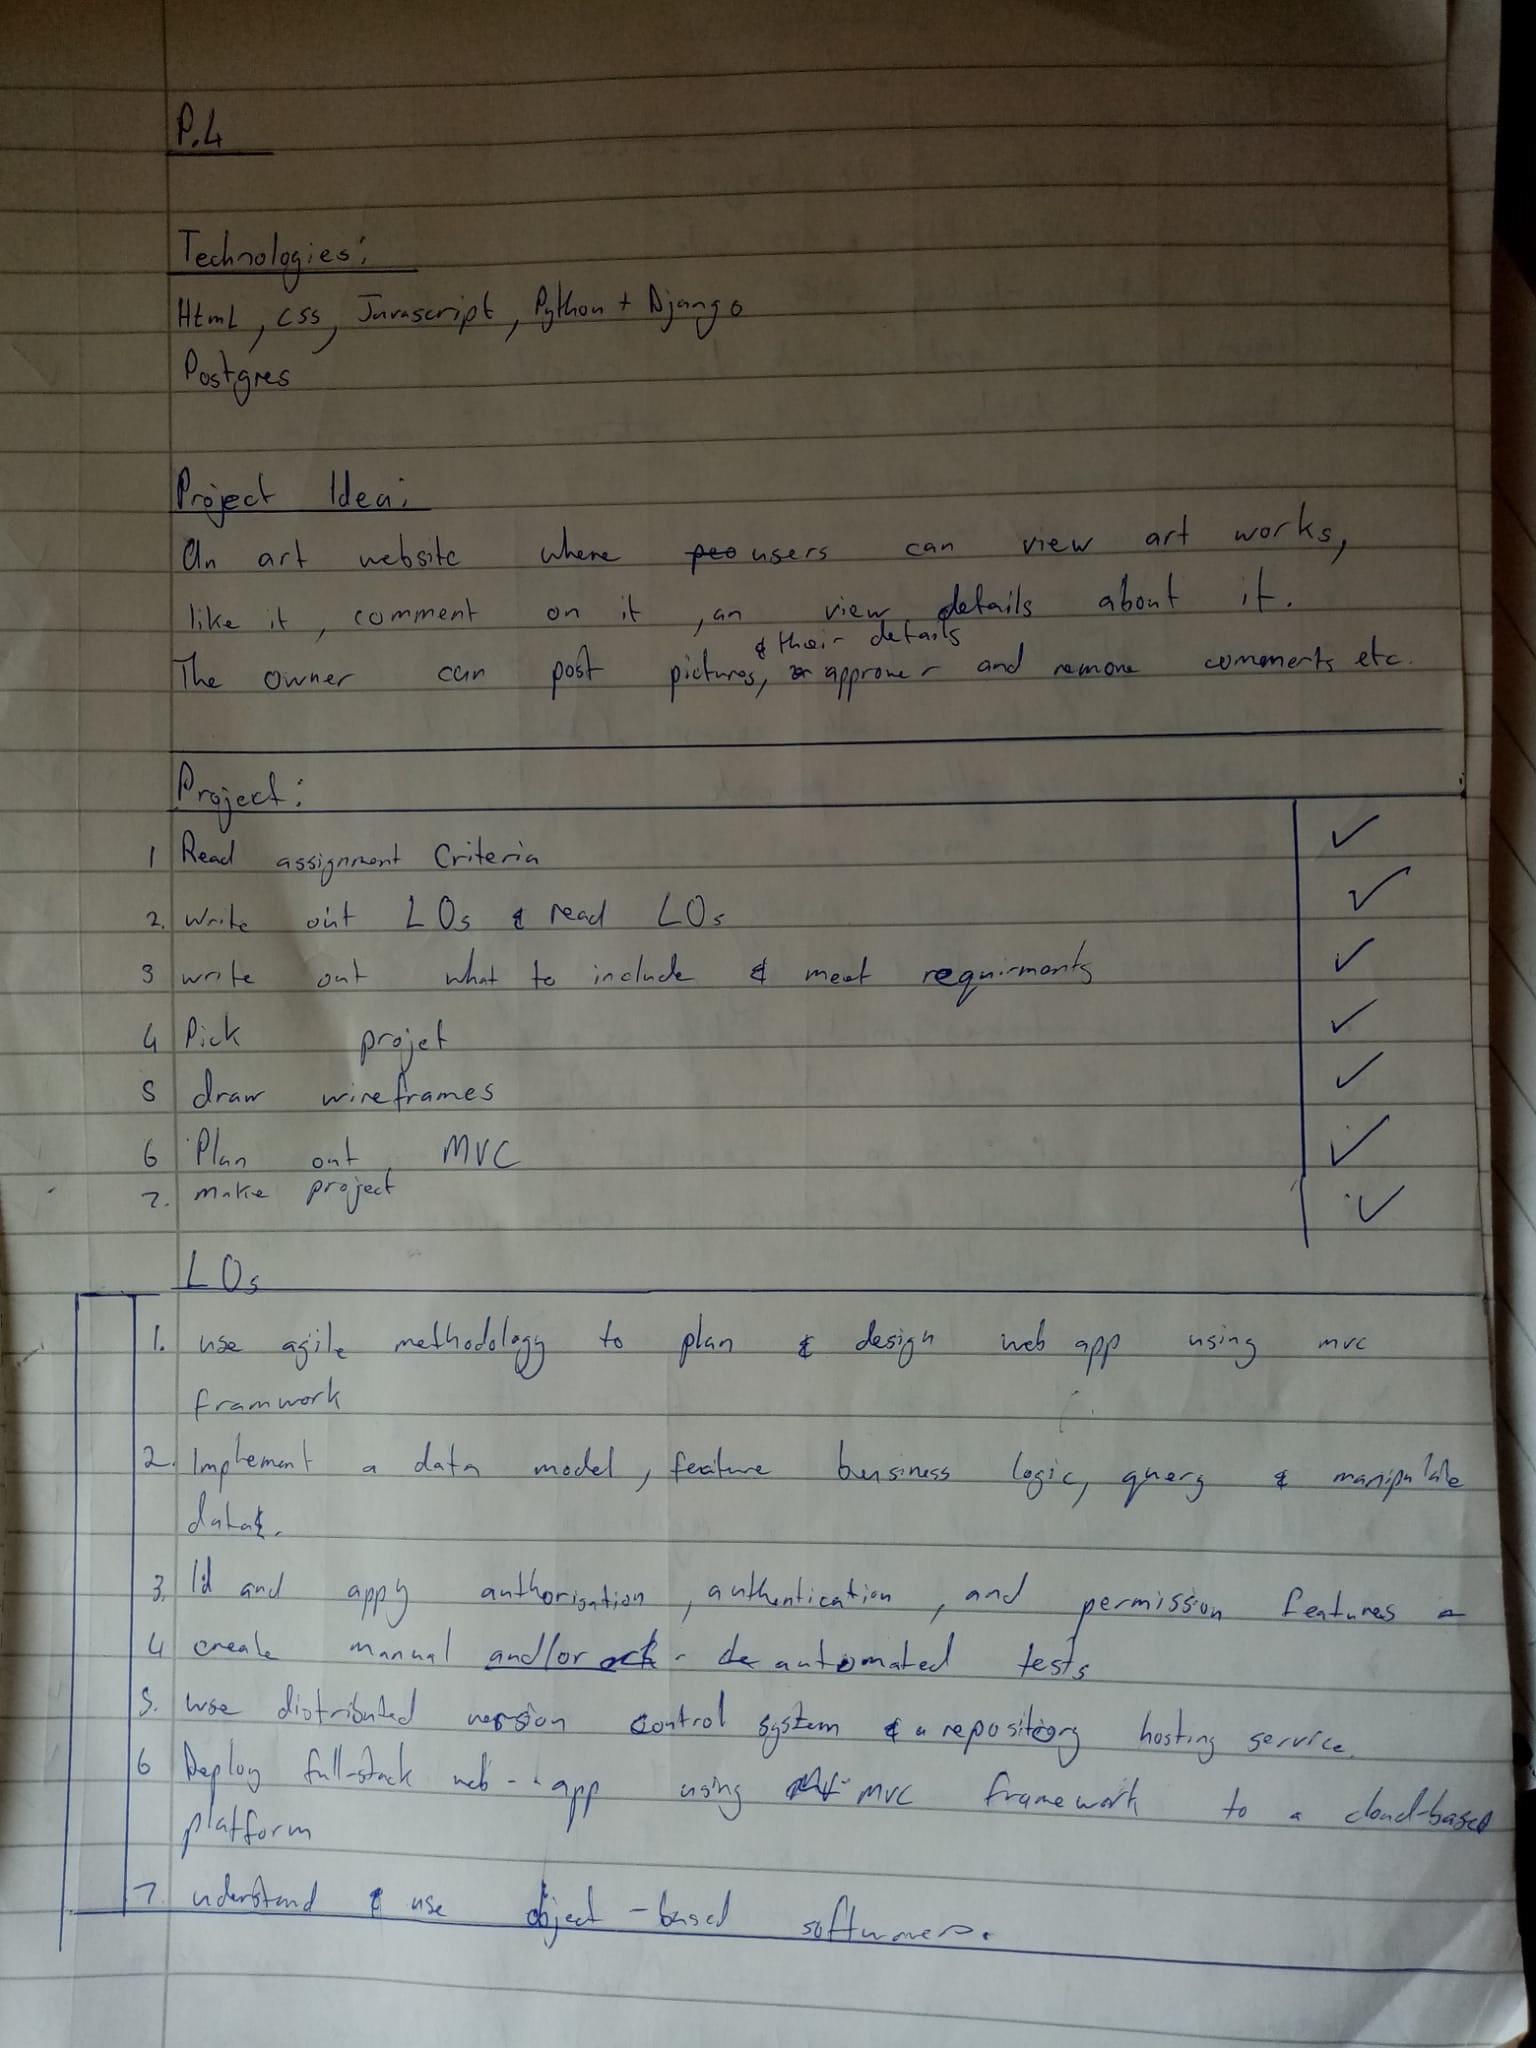 P.4
Technologies:
Html, css, Javascript, Python + Django
Postgres
Project Idea:
An art website where users can view art works,
like it, comment on it, an view details about it.
& their details
The owner can post pictures, approve and remove comments etc.
Project:
1 Read assignment Criteria ✓
2. write out LOs & read LOs ✓
3 write out what to include & meet requirments ✓
4 Pick projet ✓
5 draw wireframes ✓
6 Plan out MVC ✓
7. make project ✓
LOs
1. use agile methodology to plan & design web app using mvc
framwork
2. Implement a data model, feature business logic, query & manipulate
data.
3. Id and appy authorisation, authentication, and permission features
4 create manual and/or automated tests
5. use distributed version control system & a repository hosting service.
6 Deploy full-stack web-app using MVC framework to a cloud-based
platform
7 understand & use object-based